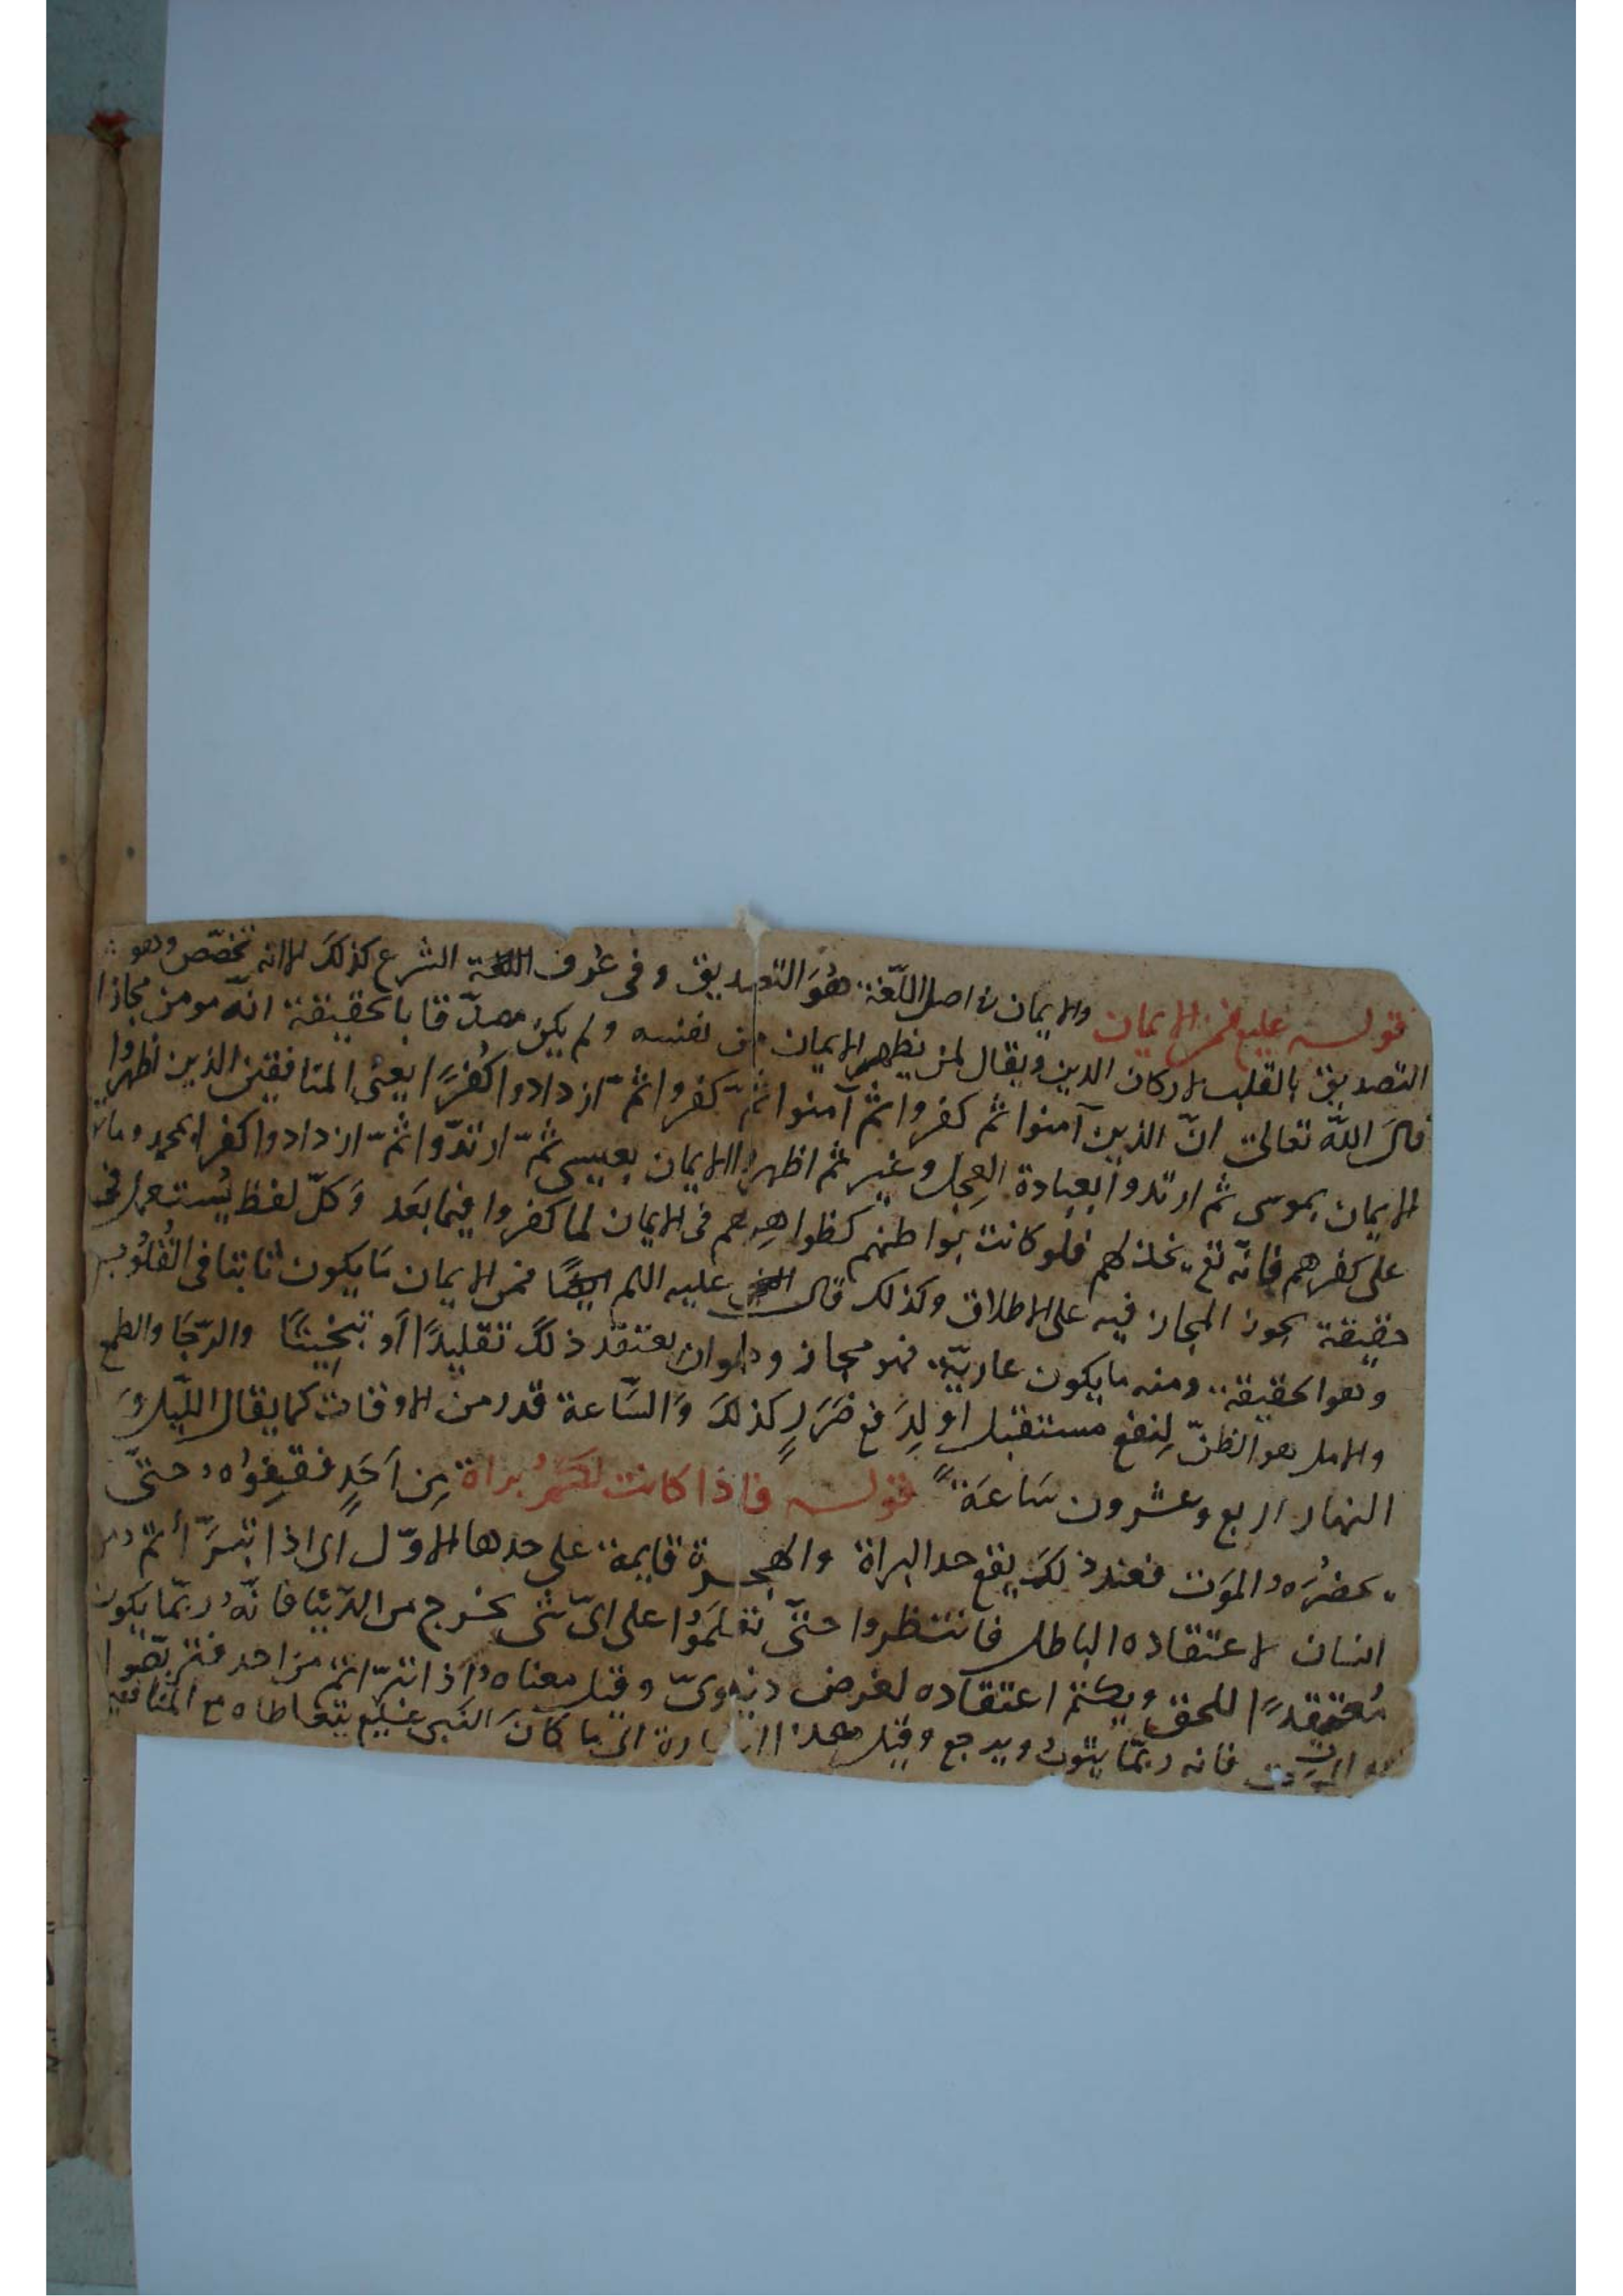 قوله عليه فمن الايمان والايمان في اصل اللّغة هُوَ التصديق وفى عُرف الشرع كذلكَ الا انه تخصّص وهو
التصديق بالقلب لاركان الدين ويقال لمن يظهر الايمان من نفسه ولم يكن مصدّقا بالحقيقة انّه مومن مجازا
قالَ اللّه تعالىٰ انّ الذين آمنوا ثم كفروا ثم آمنوا ثمّ كفروا ثمّ ازدادوا كُفرًا يعنى المنافقين الذين اظهروا
الايمان بموسى ثم ارتدوا بعبادة العِجل وغيره ثم اظهروا الايمان بعيسى ثمّ ارتدّوا ثمّ ازدادوا كفرا بمحمد وماتوا
على كفرهم فانّه تع يخذلهم فلو كانت بواطنهم كظواهِرهم فى الايمان لما كفروا فيما بَعد وَكلّ لفظ يُستعمل فى
حقيقة يجوز المجاز فيه على الاطلاق وكذلك قال عليه اللم فمن الايمان مَا يكون ثابتا فى القُلُوب
وهو الحقيقة ومنه ما يكون عاريّة فهو مجاز وهو ان يعتقد ذلكَ تقليدًا أو تبخيتًا والرّجَا والطمع
والامل هو الظنّ لِنفع مستقبل او لِدَفع ضَرَرٍ كذلكَ وَالسّاعة قدر من الاوقات كما يقال اللّيل وَ
النهار اربع وعشرون سَاعَةً قوله فاذا كانت لكم بُراة مِن اَحَدٍ فقِفوُاه حتىّ
يحضُرَه الموَت فعند ذلكَ يقع حد البراة والهجرة قايمة على حدها الاوّل اى اذا تبرّأتم من
انسان لاعتقاده الباطل فانتظروا حتىّ تعلَمُوا على اىّ شى يخرج من الدّنيَا فانّه ربّما يكون
مُعتقِدًا للحق ويكتم اعتقاده لغرض دنيوىّ وقيل معناه اذا تبرّاتم مَن احد فتربّصوا
به الموت فانه ربّما يتوبُ ويرجع وقيل هذا اشارة الى ما كانَ النَبى عليع يتعاطاه مع المنافقين